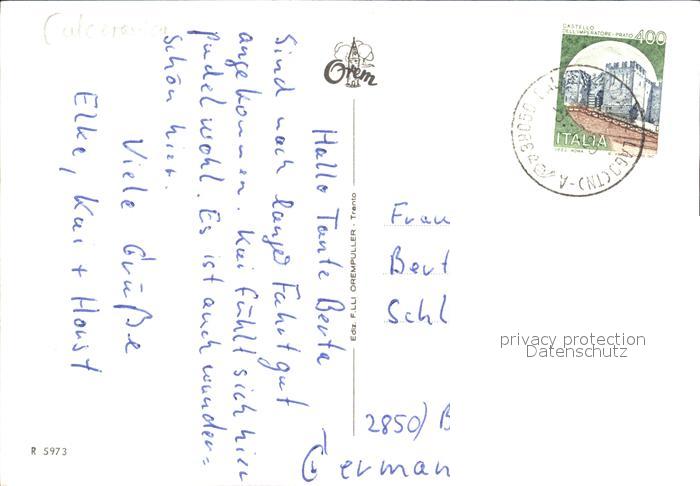 Calceranica
Hallo Tante Berta
Sind nach langer Fahrt gut
angekommen. Kai fühlt sich hier
pudelwohl. Es ist auch wunder=
schön hier.
Viele Grüße
Elke, Kai + Horst
R 5973
Orem
Ediz. F.LLI OREMPULLER - Trento
CASTELLO
DELL'IMPERATORE - PRATO 400
ITALIA
38050
LAGO (TN) - A
Frau
Bert
Schl
2850) B
German
privacy protection
Datenschutz